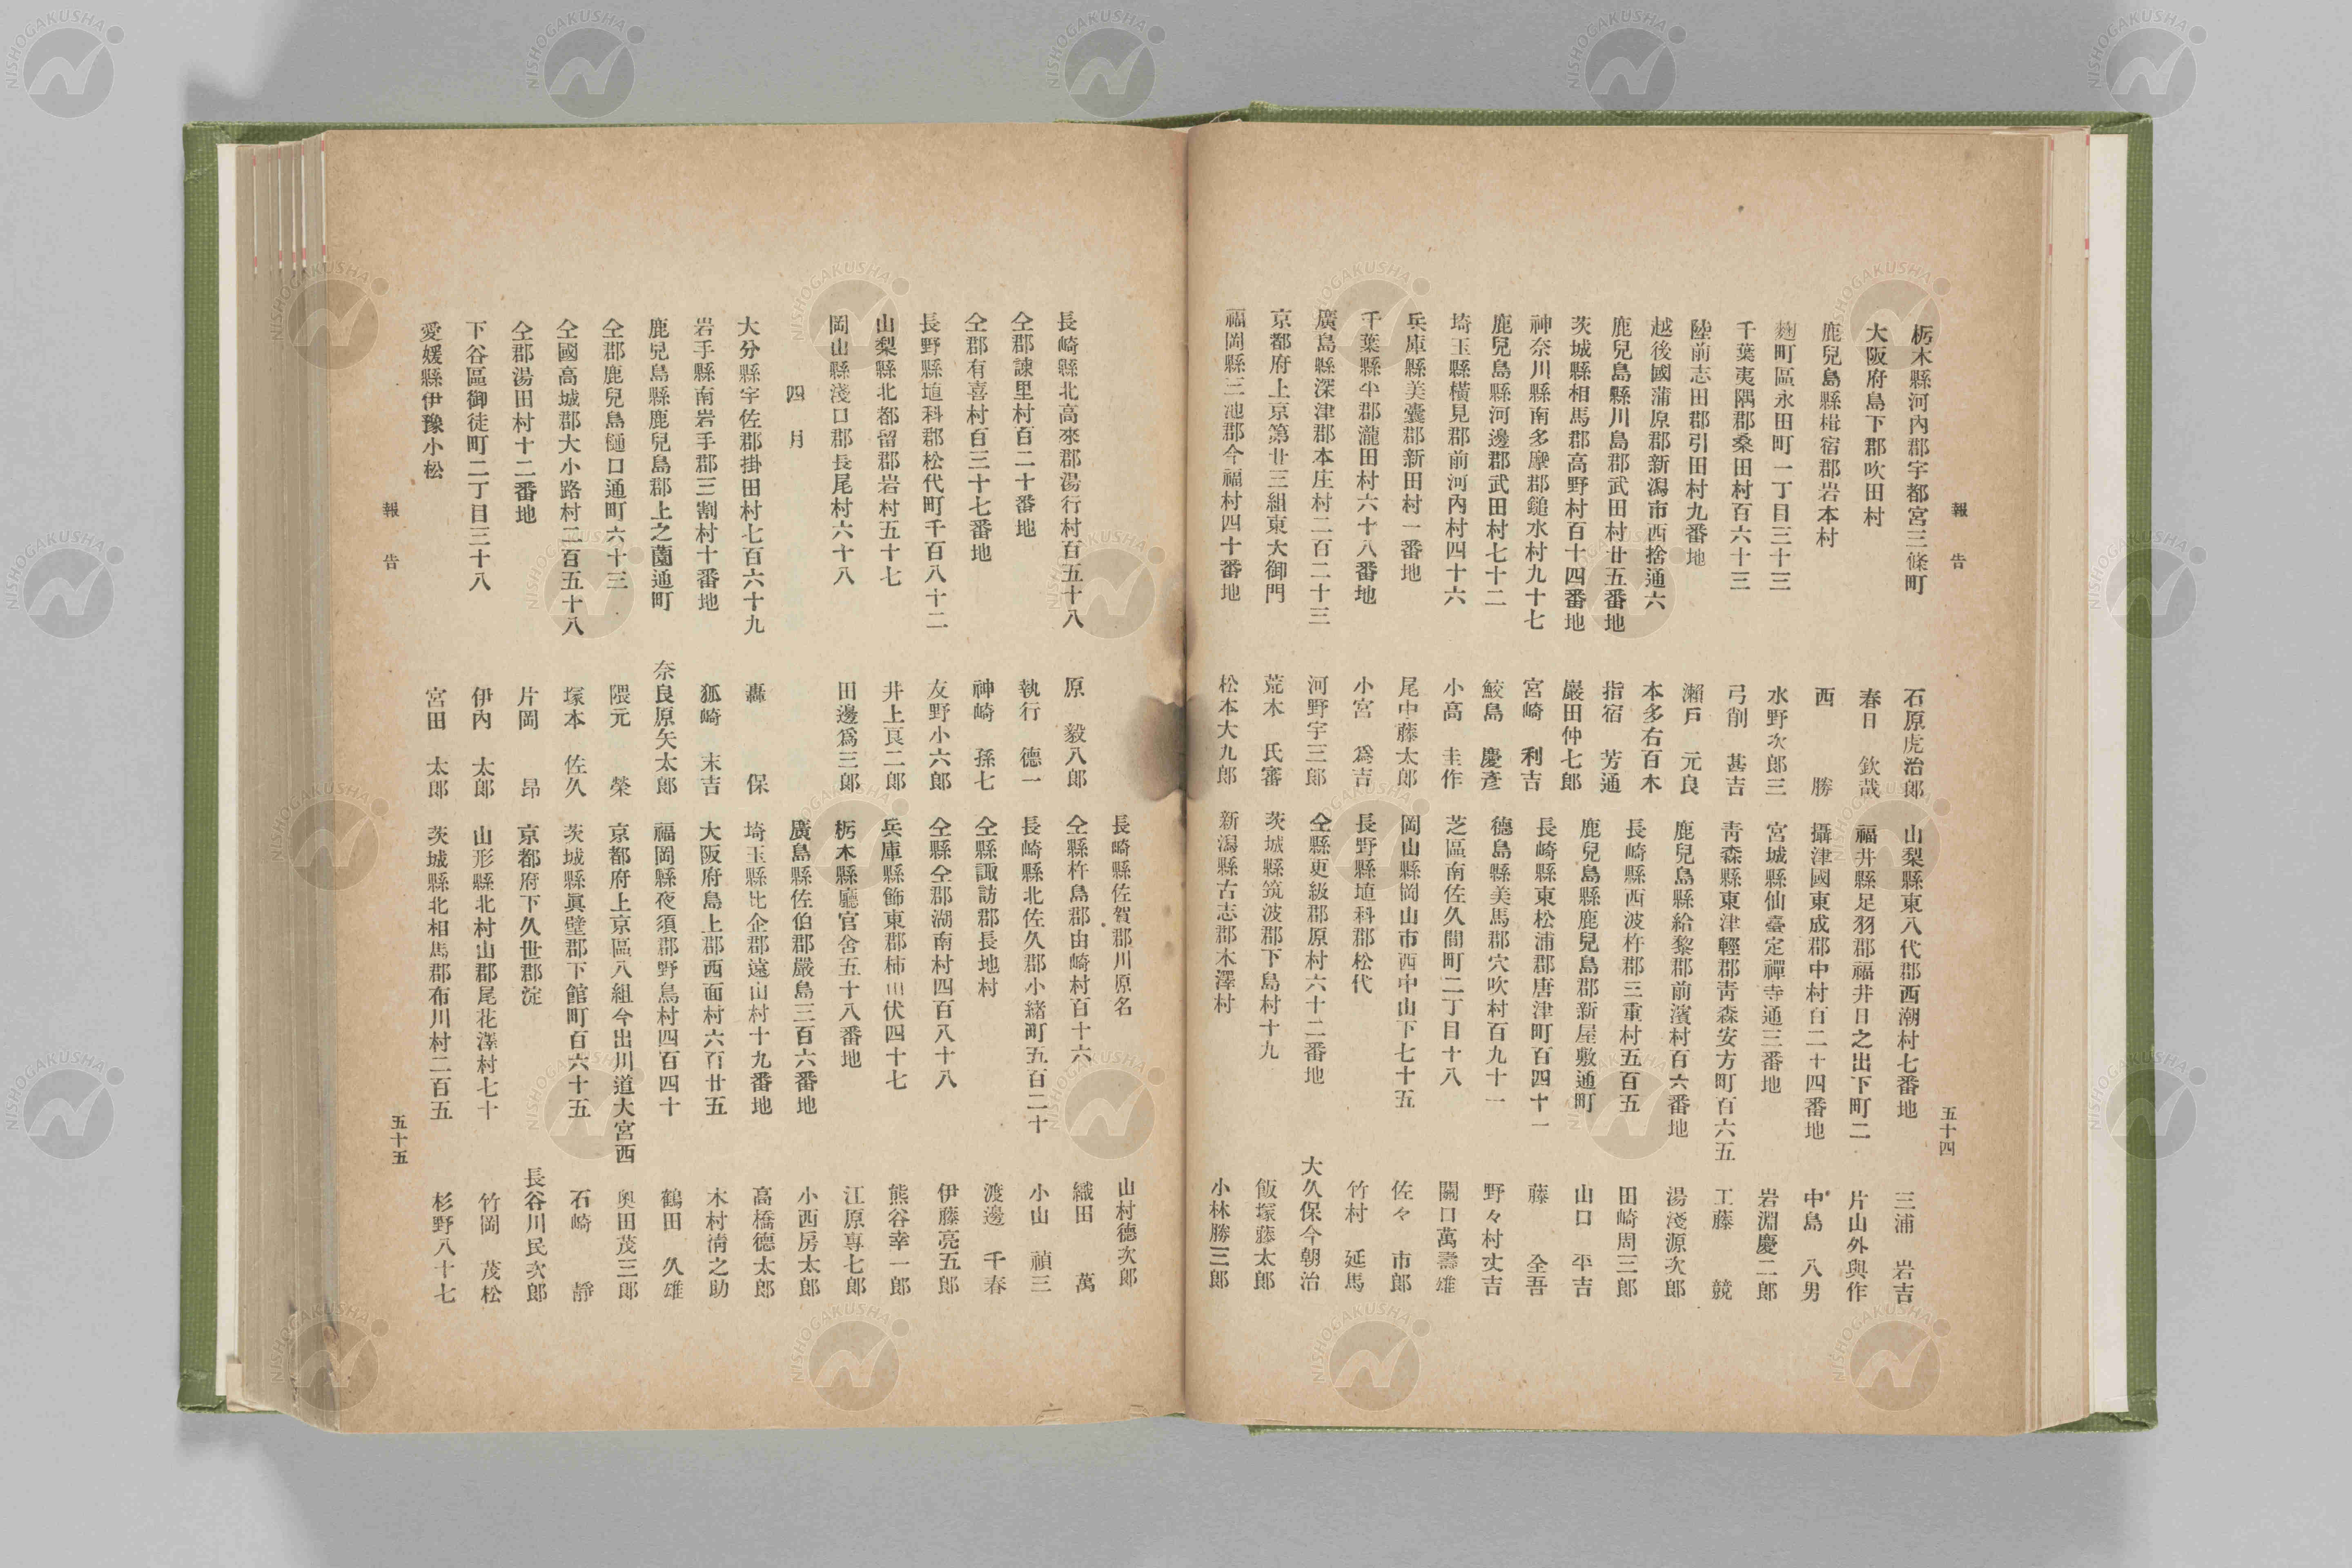 報告
五十四
栃木縣河內郡宇都宮三條町 石原虎治郎
大阪府島下郡吹田村 春日欽哉
鹿兒島縣揖宿郡岩本村 西勝
麹町區永田町一丁目三十三 水野次郎三
千葉夷隅郡桑田村百六十三 弓削甚吉
陸前志田郡引田村九番地 瀨戶元良
越後國蒲原郡新潟市西捨通六 本多右百木
鹿兒島縣川島郡武田村廿五番地 指宿芳通
茨城縣相馬郡高野村百十四番地 巖田仲七郎
神奈川縣南多摩郡鑓水村九十七 宮崎利吉
鹿兒島縣河邊郡武田村七十二 鮫島慶彥
埼玉縣橫見郡前河內村四十六 小高圭作
兵庫縣美囊郡新田村一番地 尾中藤太郎
千葉縣平郡瀧田村六十八番地 小宮爲吉
廣島縣深津郡本庄村二百二十三 河野宇三郎
京都府上京第廿三組東大御門 荒木氏審
福岡縣三池郡今福村四十番地 松本大九郎
山梨縣東八代郡西潮村七番地 三浦岩吉
福井縣足羽郡福井日之出下町二 片山外與作
攝津國東成郡中村百二十四番地 中島八男
宮城縣仙臺定禪寺通三番地 岩淵慶二郎
靑森縣東津輕郡靑森安方町百六五 工藤競
鹿兒島縣給黎郡前濱村百六番地 湯淺源次郎
長崎縣西波杵郡三重村五百五 田崎周三郎
鹿兒島縣鹿兒島郡新屋敷通町 山口平吉
長崎縣東松浦郡唐津町百四十一 藤全吾
德島縣美馬郡穴吹村百九十一 野々村丈吉
芝區南佐久間町二丁目十八 關口萬壽雄
岡山縣岡山市西中山下七十五 佐々市郎
長野縣埴科郡松代 竹村延馬
仝縣更級郡原村六十二番地 大久保今朝治
茨城縣筑波郡下島村十九 飯塚藤太郎
新潟縣古志郡木澤村 小林勝三郎
長崎縣北高來郡湯行村百五十八 原毅八郎
仝郡諫里村百二十番地 執行德一
仝郡有喜村百三十七番地 神崎孫七
長野縣埴科郡松代町千百八十二 友野小六郎
山梨縣北都留郡岩村五十七 井上良二郎
岡山縣淺口郡長尾村六十八 田邊爲三郎
四月
大分縣宇佐郡掛田村七百六十九 轟保
岩手縣南岩手郡三割村十番地 狐崎末吉
鹿兒島縣鹿兒島郡上之薗通町 奈良原矢太郎
仝郡鹿兒島樋口通町六十三 隈元榮
仝國高城郡大小路村二百五十八 塚本佐久
仝郡湯田村十二番地 片岡昂
下谷區御徒町二丁目三十八 伊內太郎
愛媛縣伊豫小松 宮田太郎
長崎縣佐賀郡川原名 山村德次郎
仝縣杵島郡由崎村百十六 織田萬
長崎縣北佐久郡小緖町五百二十 小山禎三
仝縣諏訪郡長地村 渡邊千春
仝縣仝郡湖南村四百八十八 伊藤亮五郎
兵庫縣飾東郡柿山伏四十七 熊谷幸一郎
栃木縣廳官舍五十八番地 江原專七郎
廣島縣佐伯郡嚴島三百六番地 小西房太郎
埼玉縣比企郡遠山村十九番地 高橋德太郎
大阪府島上郡西面村六百廿五 木村淸之助
福岡縣夜須郡野鳥村四百四十 鶴田久雄
京都府上京區八組今出川道大宮西 奧田茂三郎
茨城縣眞壁郡下館町百六十五 石崎靜
京都府下久世郡淀 長谷川民次郎
山形縣北村山郡尾花澤村七十 竹岡茂松
茨城縣北相馬郡布川村二百五 杉野八十七
報告
五十五
NISHOGAKUSHA